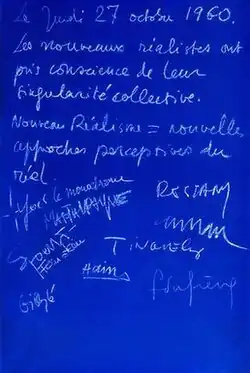 Le Jeudi 27 octobre 1960.
Les nouveaux réalistes ont
pris conscience de leur
singularité collective.
Nouveau Réalisme = nouvelles
approches perceptives du
réel.
Yves le monochrome
RESTANY
Tinguely
Hains